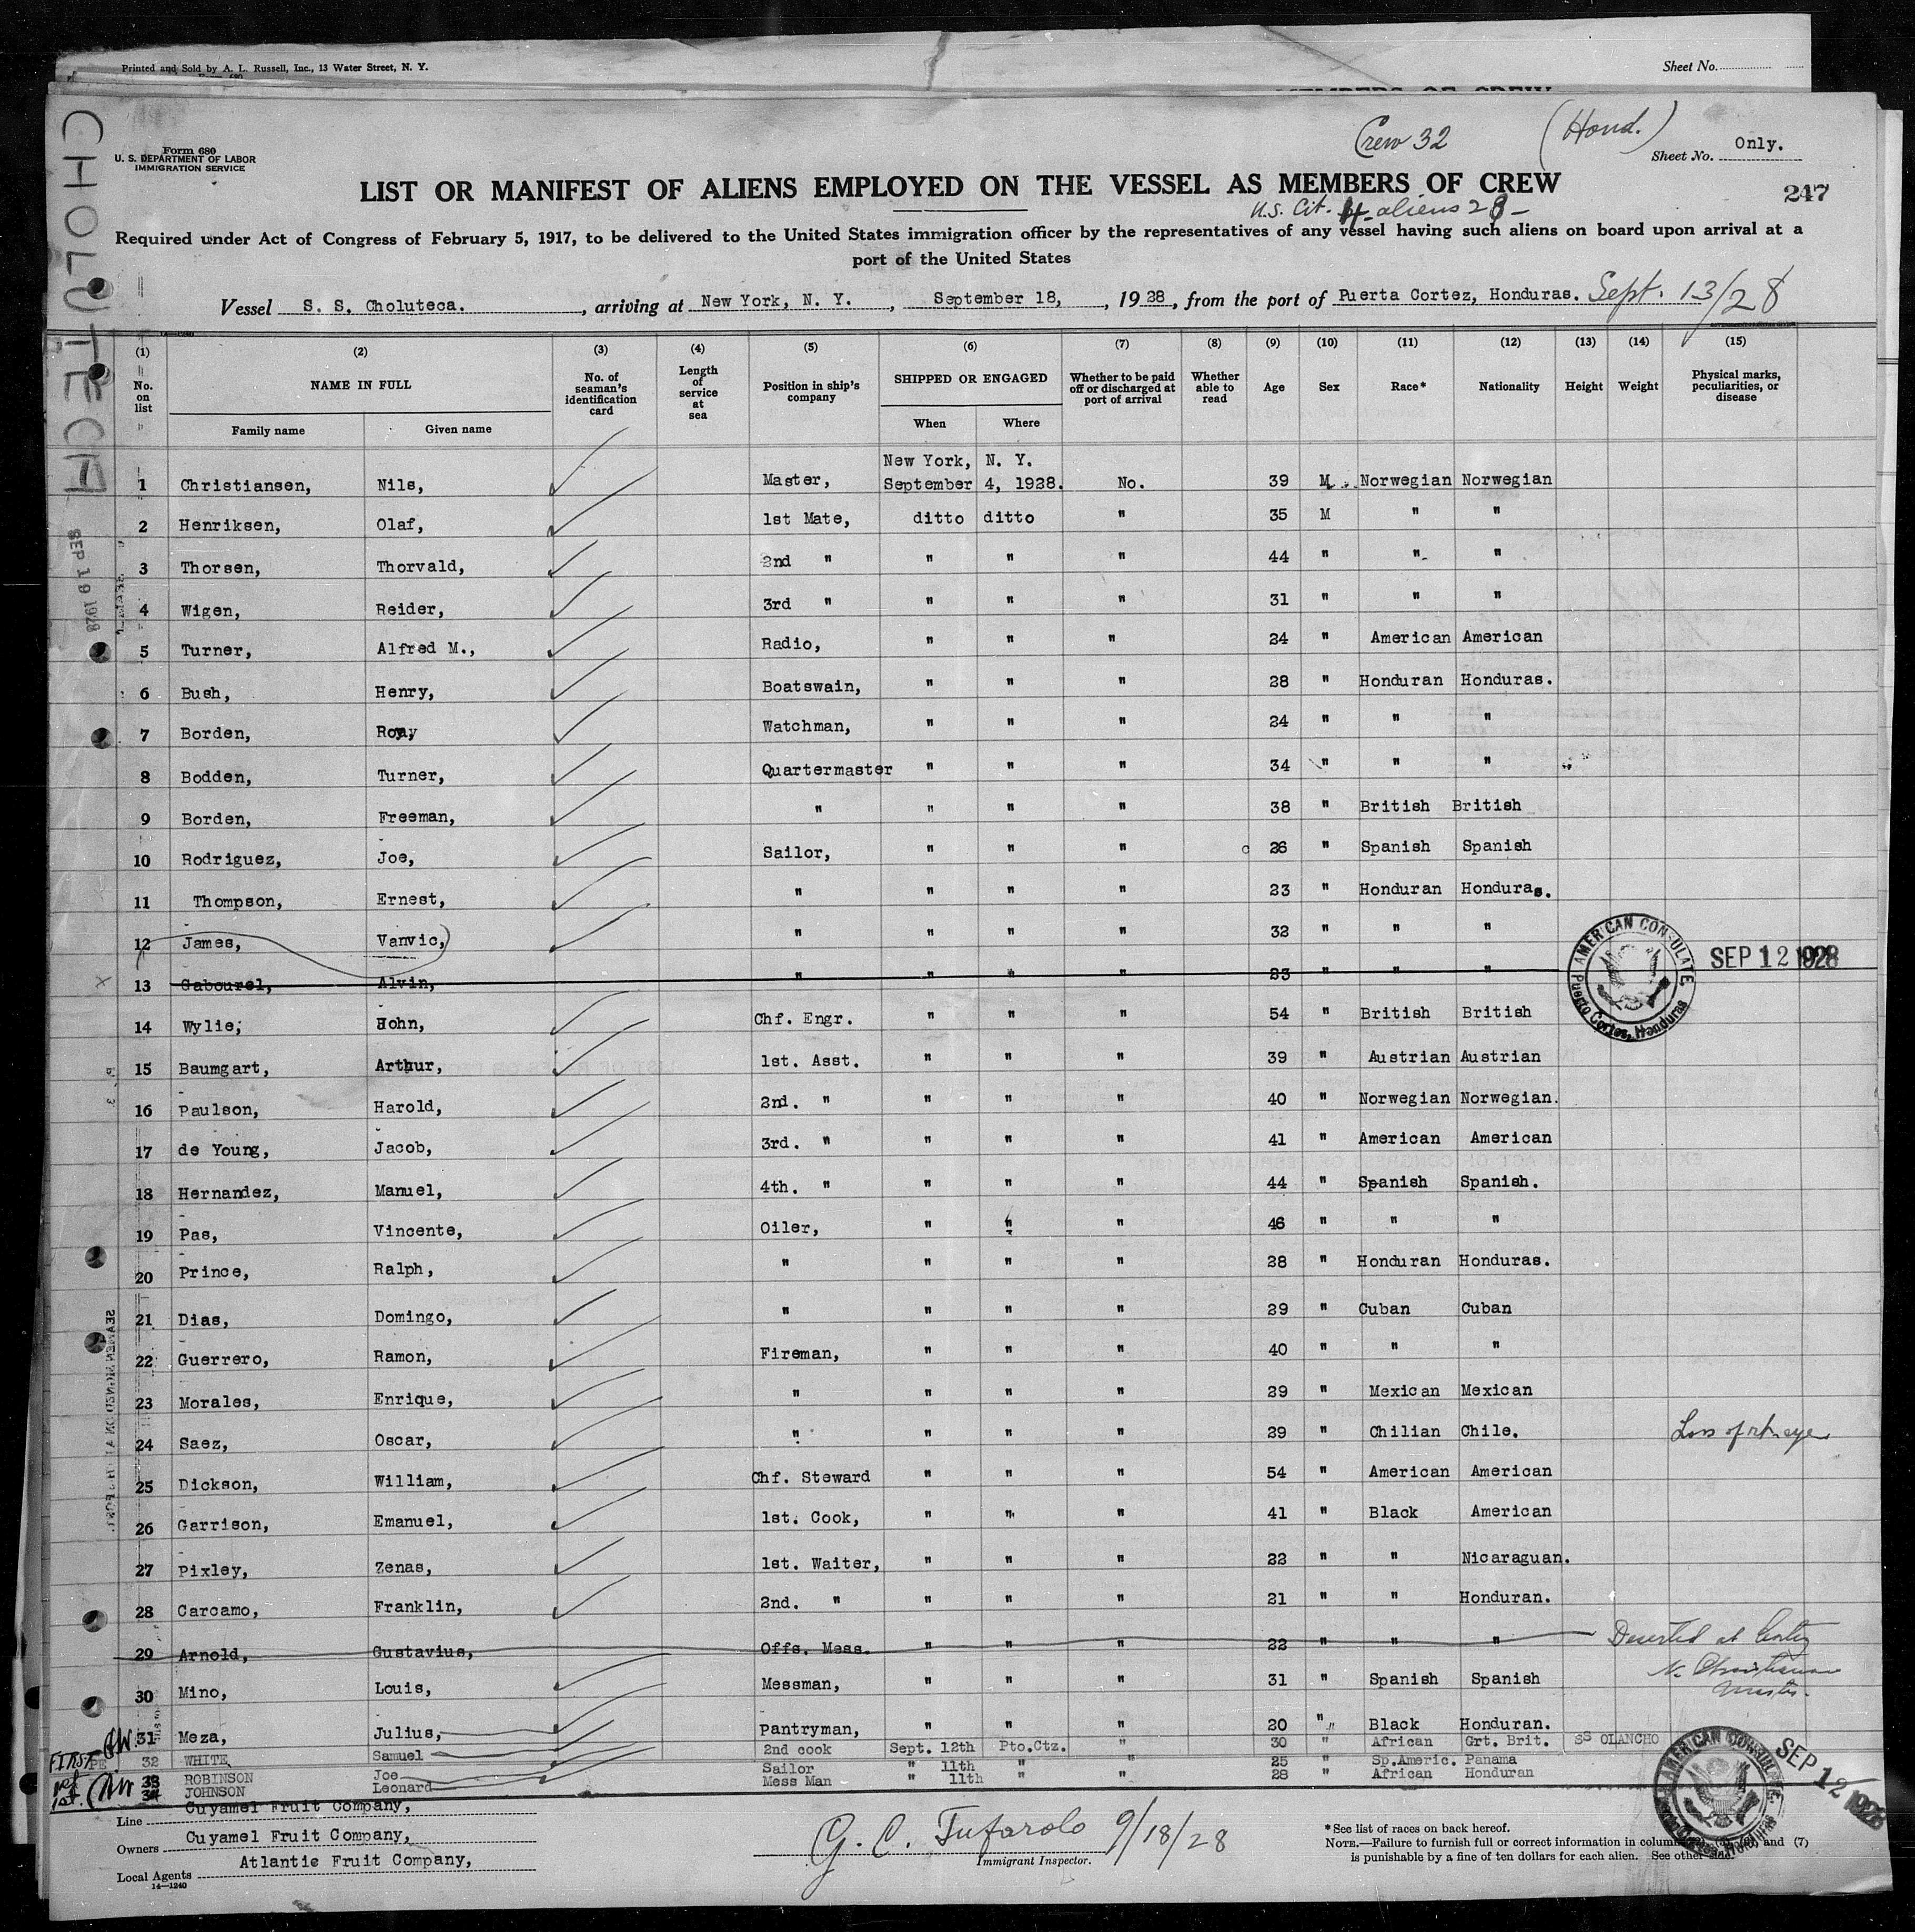 Printed and Sold by A. L. Russell, Inc., 13 Water Street, N. Y.
Sheet No.
Form 680
U. S. DEPARTMENT OF LABOR
IMMIGRATION SERVICE
Crew 32
(Hond.)
Sheet No. Only.
LIST OR MANIFEST OF ALIENS EMPLOYED ON THE VESSEL AS MEMBERS OF CREW
247
U.S. Cit. 4 - aliens 28 -
Required under Act of Congress of February 5, 1917, to be delivered to the United States immigration officer by the representatives of any vessel having such aliens on board upon arrival at a
port of the United States
Vessel S. S. Choluteca. , arriving at New York, N. Y. , September 18, , 1928, from the port of Puerta Cortez, Honduras. Sept. 13/28
CHOLUTECA
SEP 19 1928
(1) (2) (3) (4) (5) (6) (7) (8) (9) (10) (11) (12) (13) (14) (15)
No. on list NAME IN FULL No. of seaman's identification card Length of service at sea Position in ship's company SHIPPED OR ENGAGED Whether to be paid off or discharged at port of arrival Whether able to read Age Sex Race* Nationality Height Weight Physical marks, peculiarities, or disease
Family name Given name When Where
New York, N. Y.
1 Christiansen, Nils, Master, September 4, 1928. No. 39 M Norwegian Norwegian
2 Henriksen, Olaf, 1st Mate, ditto ditto " 35 M " "
3 Thorsen, Thorvald, 2nd " " " " 44 " " "
4 Wigen, Reider, 3rd " " " " 31 " " "
5 Turner, Alfred M., Radio, " " " 24 " American American
6 Bush, Henry, Boatswain, " " " 28 " Honduran Honduras.
7 Borden, Roy, Watchman, " " " 24 " " "
8 Bodden, Turner, Quartermaster " " " 34 " " "
9 Borden, Freeman, " " " " 38 " British British
10 Rodriguez, Joe, Sailor, " " " 26 " Spanish Spanish
11 Thompson, Ernest, " " " " 23 " Honduran Honduras.
12 James, Vanvic, " " " " 32 " " "
13 Gabourel, Alvin, " " " " 23 " " "
AMERICAN CONSULATE, Puerto Cortes, Honduras
SEP 12 1928
14 Wylie, John, Chf. Engr. " " " 54 " British British
15 Baumgart, Arthur, 1st. Asst. " " " 39 " Austrian Austrian
16 Paulson, Harold, 2nd. " " " " 40 " Norwegian Norwegian.
17 de Young, Jacob, 3rd. " " " " 41 " American American
18 Hernandez, Manuel, 4th. " " " " 44 " Spanish Spanish.
19 Pas, Vincente, Oiler, " " " 46 " " "
20 Prince, Ralph, " " " " 28 " Honduran Honduras.
21 Dias, Domingo, " " " " 29 " Cuban Cuban
22 Guerrero, Ramon, Fireman, " " " 40 " " "
23 Morales, Enrique, " " " " 29 " Mexican Mexican
24 Saez, Oscar, " " " " 29 " Chilian Chile. Loss of rt. eye
25 Dickson, William, Chf. Steward " " " 54 " American American
26 Garrison, Emanuel, 1st. Cook, " " " 41 " Black American
27 Pixley, Zenas, 1st. Waiter, " " " 22 " " Nicaraguan.
28 Carcamo, Franklin, 2nd. " " " " 21 " " Honduran.
29 Arnold, Gustavius, Offs. Mess. " " " 22 " " " Deserted at Cortez
N. Christiansen
Master.
30 Mino, Louis, Messman, " " " 31 " Spanish Spanish
31 Meza, Julius, Pantryman, " " " 20 " Black Honduran.
32 WHITE Samuel 2nd cook Sept. 12th Pto.Ctz. " 30 " African Grt. Brit. SS OLANCHO
33 ROBINSON Joe Sailor " 11th " " 25 " Sp.Americ. Panama
34 JOHNSON Leonard Mess Man " 11th " 28 " African Honduran
FIRST
AMERICAN CONSULATE
SEP 12 1928
Line Cuyamel Fruit Company,
Owners Cuyamel Fruit Company,
Local Agents Atlantic Fruit Company,
14—1240
G. C. Tufarolo 9/18/28
Immigrant Inspector.
*See list of races on back hereof.
NOTE.—Failure to furnish full or correct information in columns and (7)
is punishable by a fine of ten dollars for each alien. See other side.